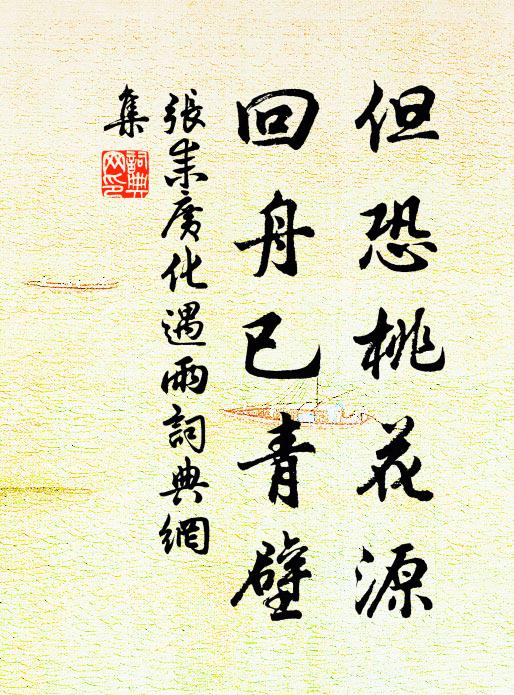 但恐桃花源
回舟已青壁
張耒廣化遇雨詞典網
集
詞典
网